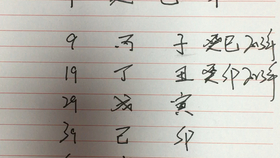 9 丙 子 癸巳2013年
19 丁 丑 癸卯2023年
29 戊 寅
39 己 卯